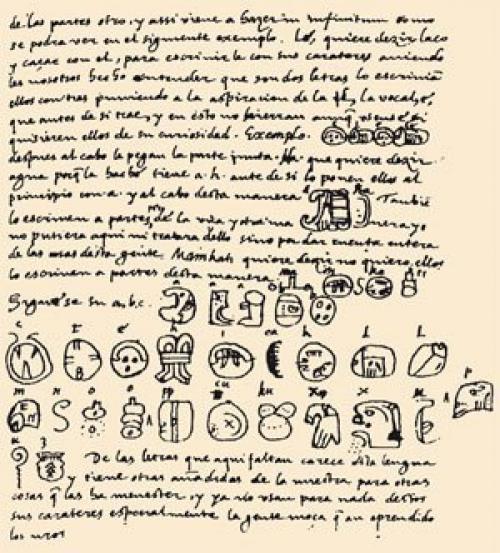 de las partes otro, y assi viene a hazer in infinitum como
se podra ver en el siguiente exemplo. Lé, quiere dezir laço
y caçar con el, para escrivirle con sus carateres aviendo
les nosotros hecho entender que son dos letras lo escrivian
ellos con tres puniendo a la aspiracion de la l, la vocal, é,
que antes de si trae, y en esto no hierran aunq usense, si
quisieren ellos de su curiosidad. Exemplo.
despues al cabo le pegan la parte junta. Ha que quiere dezir
agua porq la hache tiene a.h. ante de si lo ponen ellos al
principio con a. y al cabo desta manera ha Tambie
lo escriven a partes, de la una y otra ma nera yo
no pusiera aqui ni tratara dello sino por dar cuenta entera
de las cosas desta gente. Mainkati quiere dezir no quiero, ellos
lo escriven a partes desta manera ma i n ka ti
Siguese su a.b.c. a a a b b
c t e h i ca k l l
m n o o pp cu ku x x u p
u z
De las letras que aqui faltan carece esta lengua
y tiene otras añadidas de la nuestra para otras
cosas q las ha menester, y ya no usan para nada destos
sus carateres especialmente la gente moça q an aprendido
los nros